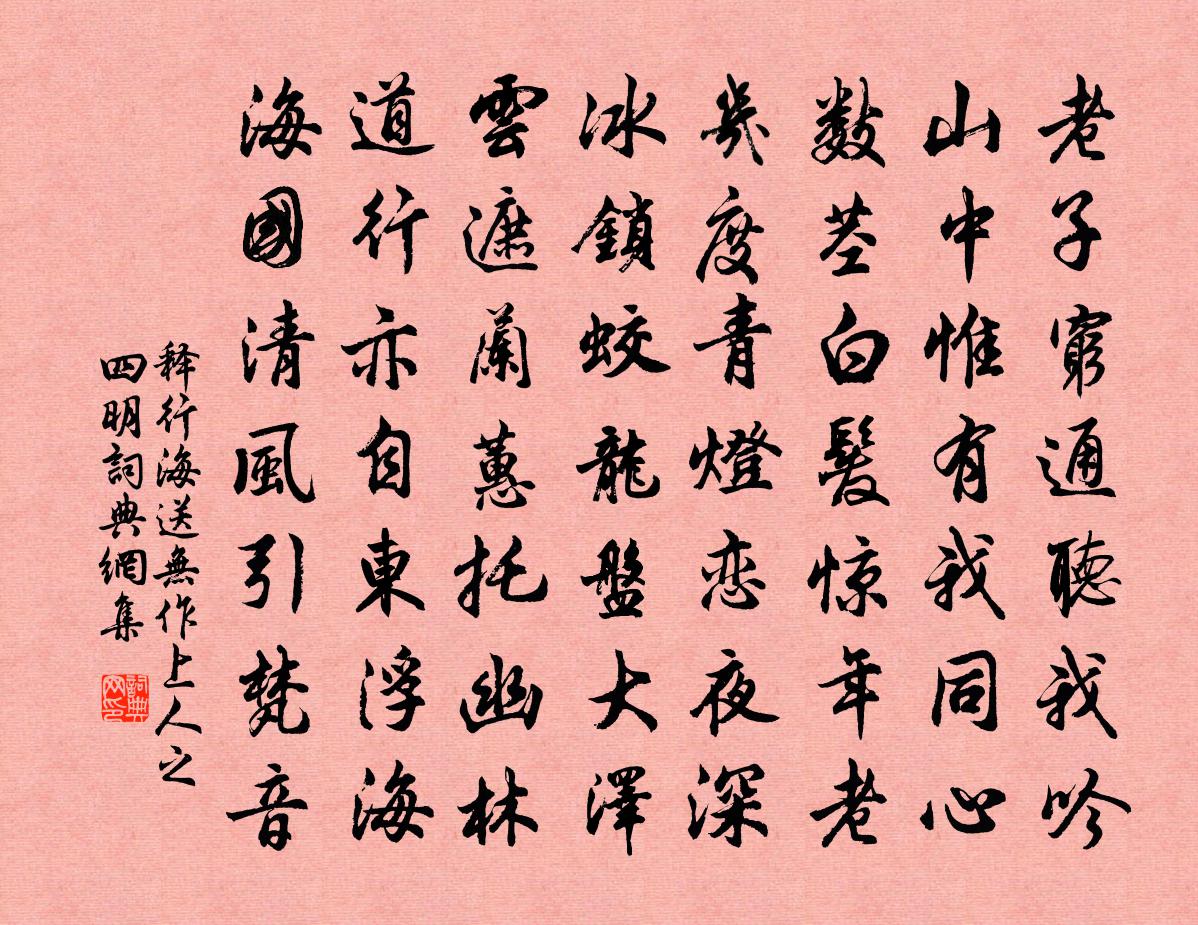 老子窮通聽我吟
山中惟有我同心
數莖白髮惊年老
幾度青燈恋夜深
冰鎖蛟龍盤大澤
雲遮蘭蕙托幽林
道行亦自東浮海
海國清風引梵音
释行海送無作上人之
四明詞典網集
詞典网印